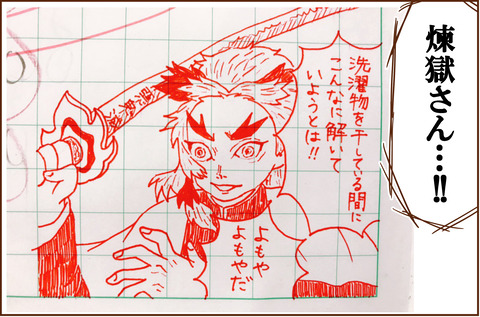 煉獄さん…!!
洗濯物を干している間に
こんなに解いて
いようとは!!
よもや
よもやだ